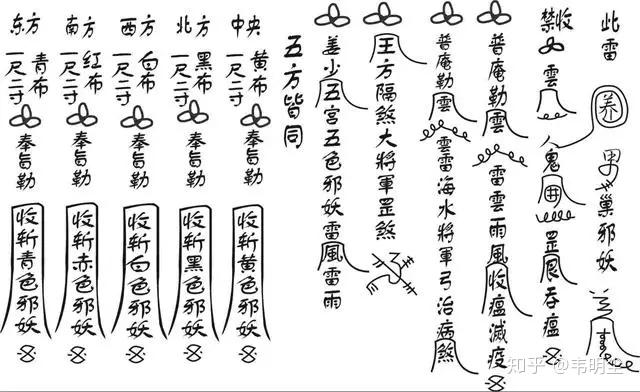 此雷养巢邪妖
禁收雲人鬼罡吞瘟
普庵勒雲雷雲雨風收瘟滅疫
普庵勒雲雲雷海水將軍弓治病煞
王方隔煞大將軍罡煞
姜少五宫五色邪妖雷風雷雨
五方皆同
中央
黄布
一尺二寸
奉旨勒
收斩黄色邪妖
北方
黑布
一尺二寸
奉旨勒
收斩黑色邪妖
西方
白布
一尺二寸
奉旨勒
收斩白色邪妖
南方
红布
一尺二寸
奉旨勒
收斩赤色邪妖
东方
青布
一尺二寸
奉旨勒
收斩青色邪妖
知乎 @韦明